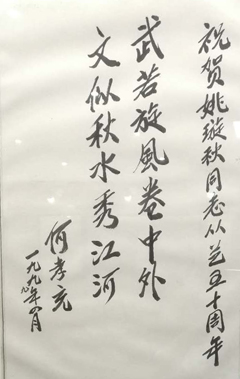 祝贺姚璇秋同志从艺五十周年
武若旋風卷中外
文似秋水秀江河
何孝充
一九九八年八月